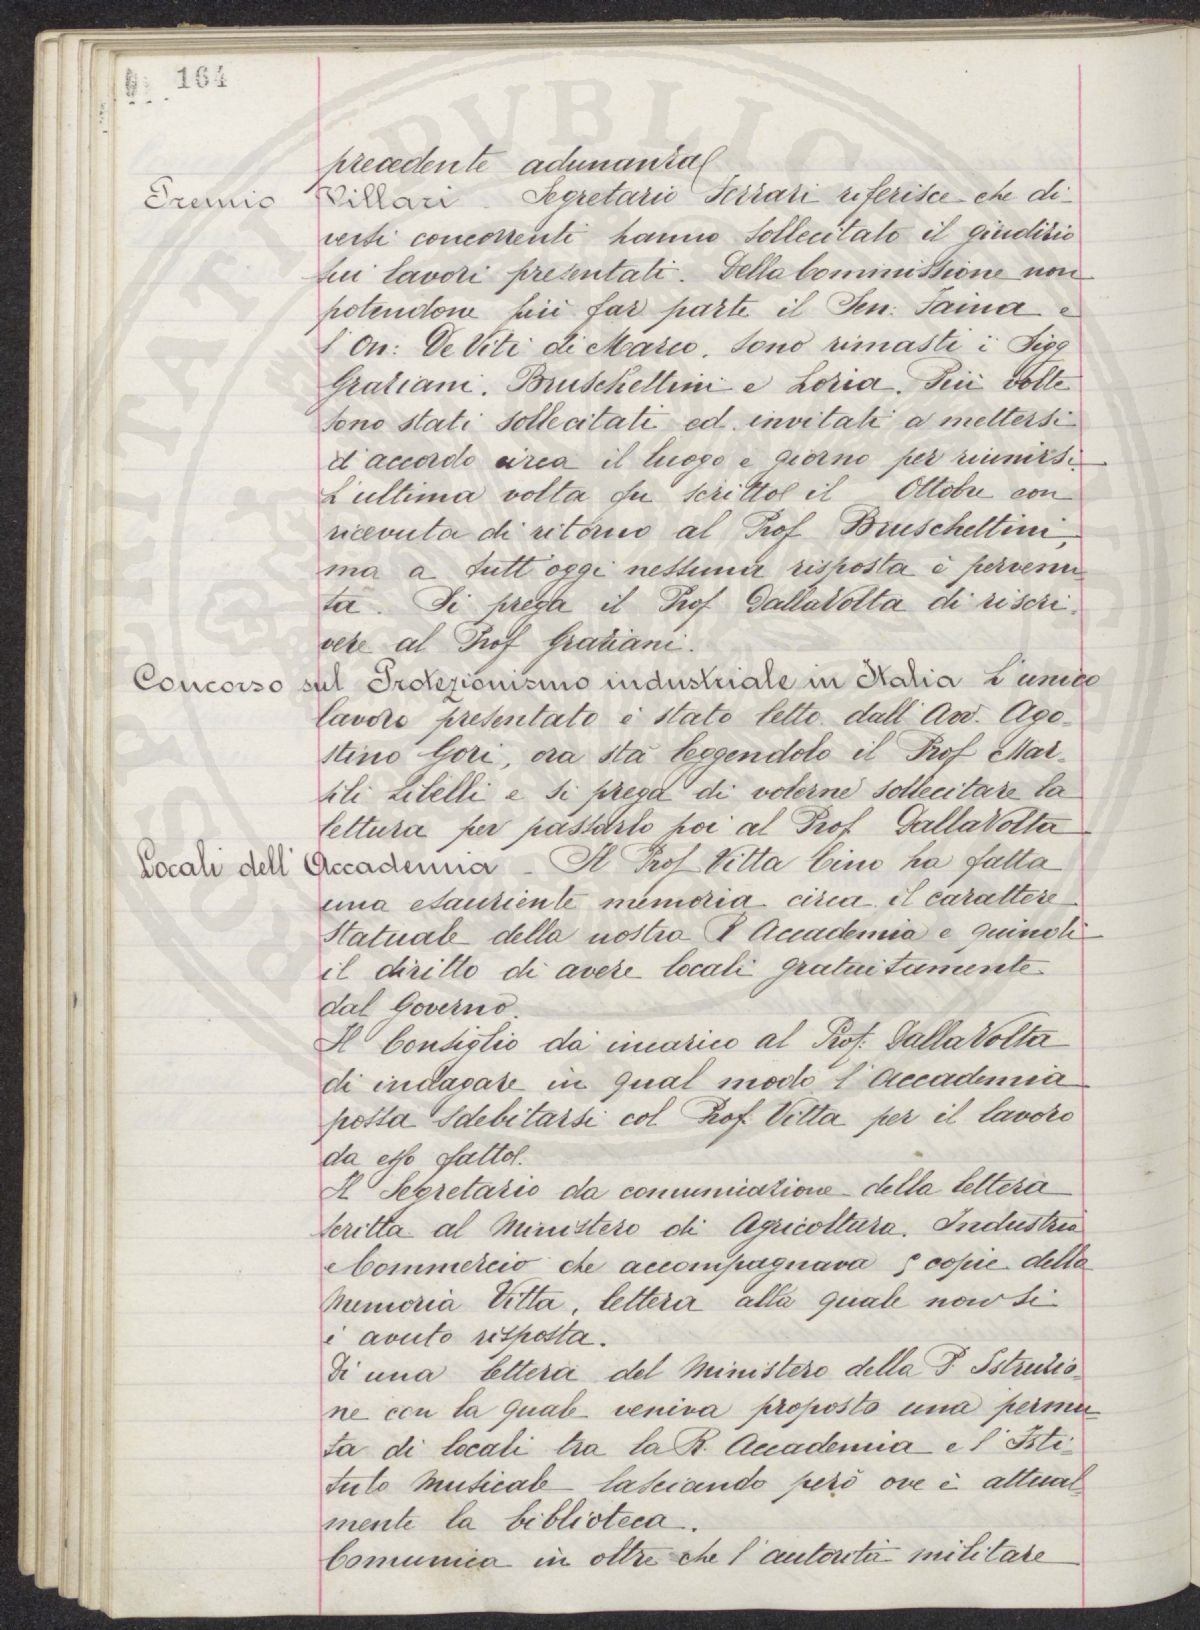 164
precedente adunanza
Premio Villari - Segretario Serrari riferisce che di-
versi concorrenti hanno sollecitato il giudizio
sui lavori presentati. Della Commissione non
potendone più far parte il Sen: Faina e
l'On: De Viti di Marco, sono rimasti i Sigg
Graziani, Bruschettini e Loria. Più volte
sono stati sollecitati ed invitati a mettersi
d'accordo circa il luogo e giorno per riunirsi.
L'ultima volta fu scritto il Ottobre con
ricevuta di ritorno al Prof Bruschettini,
ma a tutt'oggi nessuna risposta è pervenu-
ta. Si prega il Prof DallaVolta di riscri-
vere al Prof Graziani.
Concorso sul Protezionismo industriale in Italia L'unico
lavoro presentato è stato letto dall'Avv. Ago-
stino Gori, ora sta leggendolo il Prof Mar-
sili Libelli e si prega di volerne sollecitare la
lettura per passarlo poi al Prof DallaVolta
Locali dell'Accademia - Il Prof Vitta Cino ha fatta
una esauriente memoria circa il carattere
statuale della nostra R Accademia e quindi
il diritto di avere locali gratuitamente
dal Governo.
Il Consiglio dà incarico al Prof. DallaVolta
di indagare in qual modo l'Accademia
possa sdebitarsi col Prof. Vitta per il lavoro
da esso fatto.
Il Segretario da comunicazione della lettera
scritta al Ministero di Agricoltura, Industria
e Commercio che accompagnava 5 copie della
Memoria Vitta, lettera alla quale non si
è avuto risposta.
Di una lettera del Ministero della P. Istruzio-
ne con la quale veniva proposto una permu-
ta di locali tra la R. Accademia e l'Isti-
tuto Musicale lasciando però ove è attual-
mente la biblioteca.
Comunica in oltre che l'autorità militare